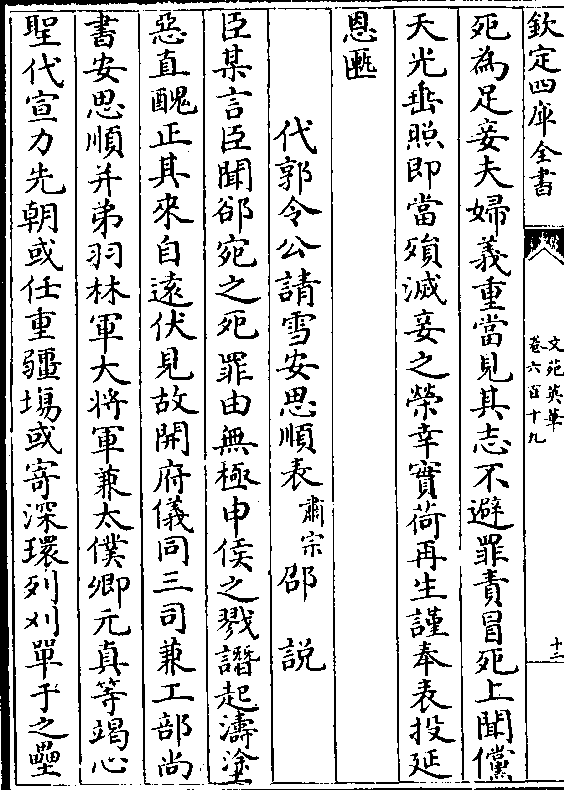 欽定四庫全書
文苑英華
卷六百十九
十二
死為足妾夫婦義重當見其志不避罪責冒死上聞儻
天光垂照即當殞滅妾之榮幸實荷再生謹奉表投延
恩匭
代郭令公請雪安思順表 肅宗 邵説
臣某言臣聞郤宛之死罪由無極申侯之戮譖起濤塗
惡直醜正其來自遠伏見故開府儀同三司兼工部尚
書安思順并弟羽林軍大將軍兼太僕卿元真等竭心
聖代宣力先朝或任重疆埸或寄深環列刈單于之壘